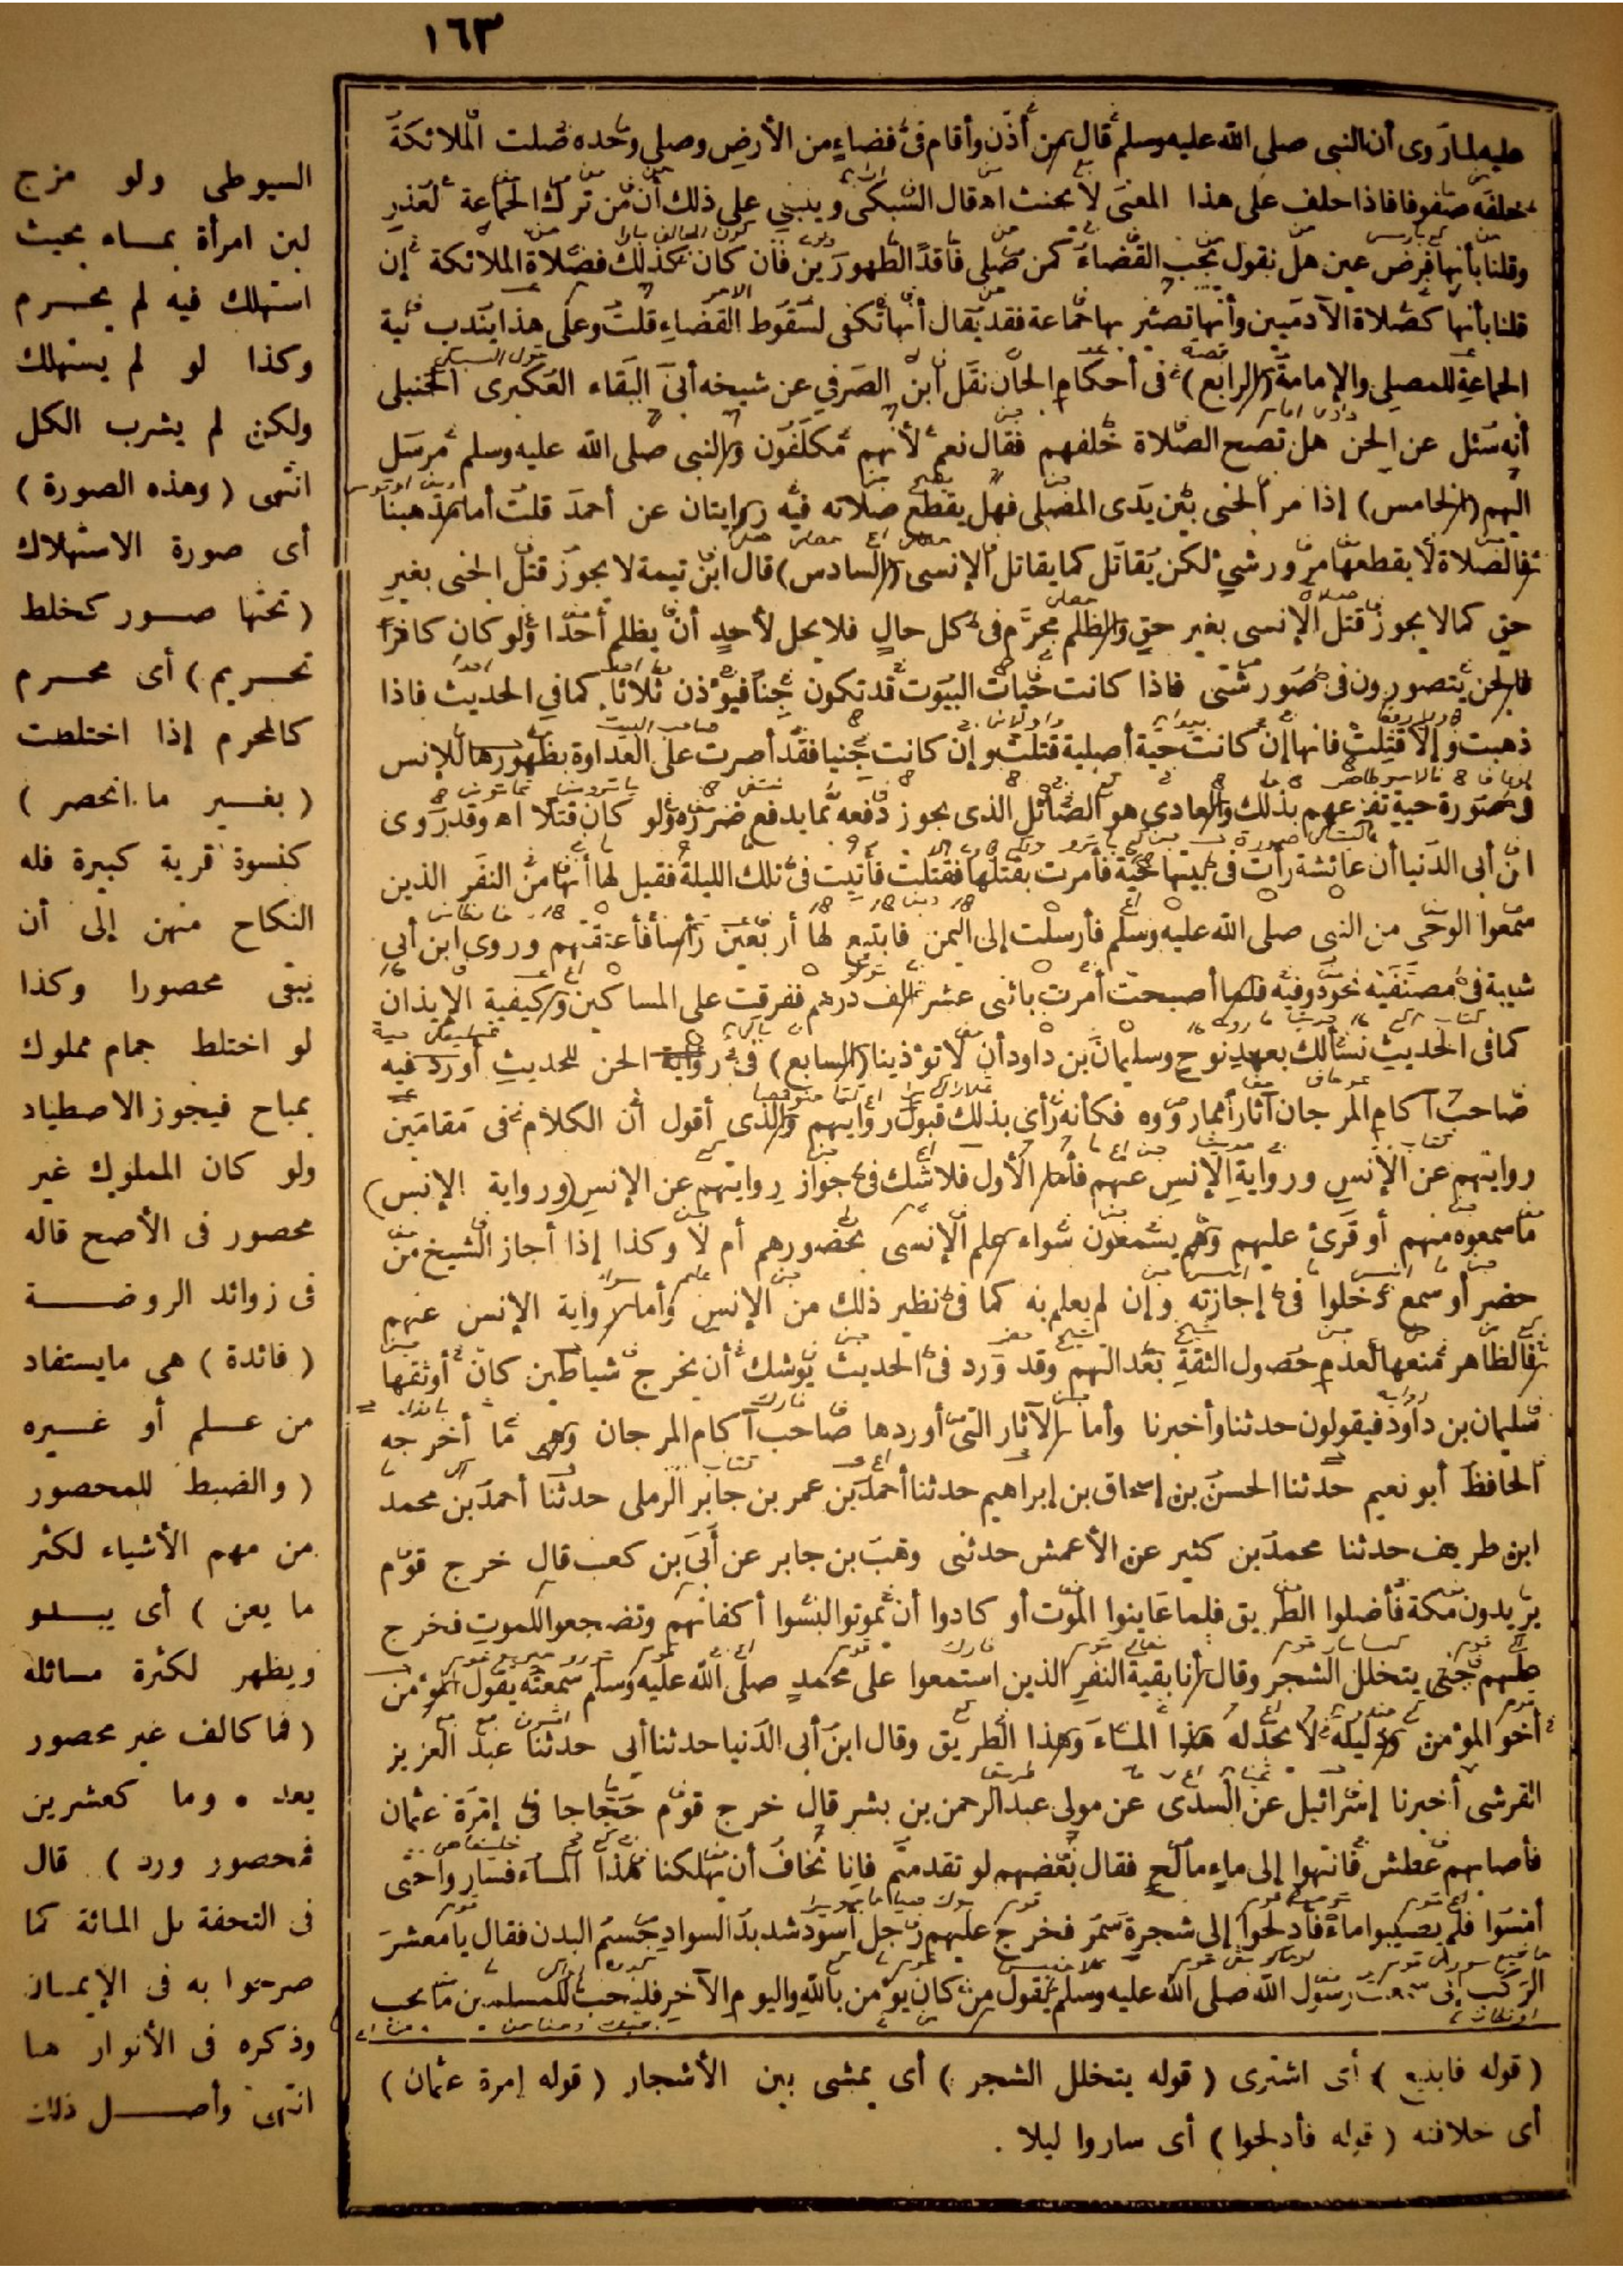 ١٦٣
عليه لما روى أن النبى صلى الله عليه وسلم قال من أذن وأقام فى فضاء من الأرض وصلى وحده صلت الملائكة
خلفه صفوفا فاذا حلف على هذا المعنى لا يحنث اه قال السبكى وينبنى على ذلك أن من ترك الجماعة لعذر
وقلنا بأنها فرض عين هل نقول يجب القضاء كمن صلى فاقد الطهورين فان كان كذلك فصلاة الملائكة إن
قلنا بأنها كصلاة الآدميين وأنها تصير بها جماعة فقد يقال أنها تكفى لسقوط القضاء قلت وعلى هذا يندب نية
الجماعة للمصلى والإمامة (الرابع) فى أحكام الجان نقل ابن الصرفي عن شيخه أبى البقاء العكبرى الحنبلى
أنه سئل عن الجن هل تصح الصلاة خلفهم فقال نعم لأنهم مكلفون والنبى صلى الله عليه وسلم مرسل
اليهم (الخامس) إذا مر الجنى بين يدى المصلى فهل يقطع صلاته فيه روايتان عن أحمد قلت أما مذهبنا
فالصلاة لا يقطعها مرور شىء لكن يقاتل كما يقاتل الإنسى (السادس) قال ابن تيمة لا يجوز قتل الجنى بغير
حق كما لا يجوز قتل الإنسى بغير حق والظلم محرم فى كل حال فلا يحل لأحد أن يظلم أحدا ولو كان كافرا
فالجن يتصورون فى صور شتى فاذا كانت حيات البيوت قد تكون جنا فيؤذن ثلاثا كما في الحديث فاذا
ذهبت وإلا قتلت فانها إن كانت حية أصلية قتلت وإن كانت جنيا فقد أصرت على العداوة بظهورها للإنس
فى صورة حية تفزعهم بذلك والعادى هو الصائل الذى يجوز دفعه بما يدفع ضرره ولو كان قتلا اه وقد روى
ابن أبى الدنيا أن عائشة رأت فى بيتها حية فأمرت بقتلها فقتلت فأتيت فى تلك الليلة فقيل لها أنها من النفر الذين
سمعوا الوحى من النبى صلى الله عليه وسلم فأرسلت إلى اليمن فابتيع لها أربعين رأسا فأعتقتهم وروى ابن أبى
شيبة فى مصنفه نحوه وفيه فلما أصبحت أمرت باثنى عشر ألف درهم ففرقت على المساكين وكيفية الإيذان
كما فى الحديث نسألك بعهد نوح وسليمان بن داود أن لا تؤذينا (السابع) فى رواية الجن للحديث أورد فيه
صاحب آكام المرجان آثارا مما رووه فكأنه رأى بذلك قبول روايتهم والذى أقول أن الكلام فى مقامين
روايتهم عن الإنس ورواية الإنس عنهم فأما الأول فلا شك فى جواز روايتهم عن الإنس (ورواية الإنس)
ما سمعوه منهم أو قرئ عليهم وهم يسمعون سواء علم الإنسى بحضورهم أم لا وكذا إذا أجاز الشيخ من
حضر أو سمع دخلوا فى إجازته وإن لم يعلم به كما فى نظير ذلك من الإنس وأما رواية الإنس عنهم
فالظاهر منعها لعدم حصول الثقة بعدالتهم وقد ورد فى الحديث يوشك أن يخرج شياطين كان أوثقها
سليمان بن داود فيقولون حدثنا وأخبرنا وأما الآثار التى أوردها صاحب آكام المرجان وهى ما أخرجه
الحافظ أبو نعيم حدثنا الحسن بن إسحاق بن إبراهيم حدثنا أحمد بن عمر بن جابر الرملى حدثنا أحمد بن محمد
ابن طريف حدثنا محمد بن كثير عن الأعمش حدثنى وهب بن جابر عن أبى بن كعب قال خرج قوم
يريدون مكة فأضلوا الطريق فلما عاينوا الموت أو كادوا أن يموتوا لبسوا أكفانهم وتضجعوا للموت فخرج
عليهم جنى يتخلل الشجر وقال أنا بقية النفر الذين استمعوا على محمد صلى الله عليه وسلم سمعته يقول المؤمن
أخو المؤمن ودليله لا يخذله هذا الماء وهذا الطريق وقال ابن أبى الدنيا حدثنا أبى حدثنا عبد العزيز
القرشى أخبرنا إسرائيل عن السدى عن مولى عبد الرحمن بن بشر قال خرج قوم حجاجا فى إمرة عثمان
فأصابهم عطش فانتهوا إلى ماء مالح فقال بعضهم لو تقدمتم فانا نخاف أن يهلكنا هذا الماء فساروا حتى
أمسوا فلم يصيبوا ماء فأدلجوا إلى شجرة سمر فخرج عليهم رجل أسود شديد السواد جسم البدن فقال يا معشر
الركب إنى سمعت رسول الله صلى الله عليه وسلم يقول من كان يؤمن بالله واليوم الآخر فليحب للمسلمين ما يحب
(قوله فابتيع) أى اشترى (قوله يتخلل الشجر) أى يمشى بين الأشجار (قوله إمرة عثمان)
أى خلافته (قوله فأدلجوا) أى ساروا ليلا.
السيوطى ولو مزج
لبن امرأة بماء بحيث
استهلك فيه لم يحرم
وكذا لو لم يستهلك
ولكن لم يشرب الكل
انتهى (وهذه الصورة)
أى صورة الاستهلاك
(تحتها صور كخلط
تحريم) أى محرم
كالمحرم إذا اختلطت
(بغير ما انحصر)
كنسوة قرية كبيرة فله
النكاح منهن إلى أن
يبقى محصورا وكذا
لو اختلط حمام مملوك
بمباح فيجوز الاصطياد
ولو كان المملوك غير
محصور فى الأصح قاله
فى زوائد الروضة
(فائدة) هى ما يستفاد
من علم أو غيره
(والضبط للمحصور
من مهم الأشياء لكثر
ما يعن) أى يبدو
ويظهر لكثرة مسائله
(فما كالف غير محصور
يعد * وما كعشرين
فمحصور ورد) قال
فى التحفة بل المائة كما
صرحوا به فى الإيمان
وذكره فى الأنوار هنا
انتهى وأصل ذلك